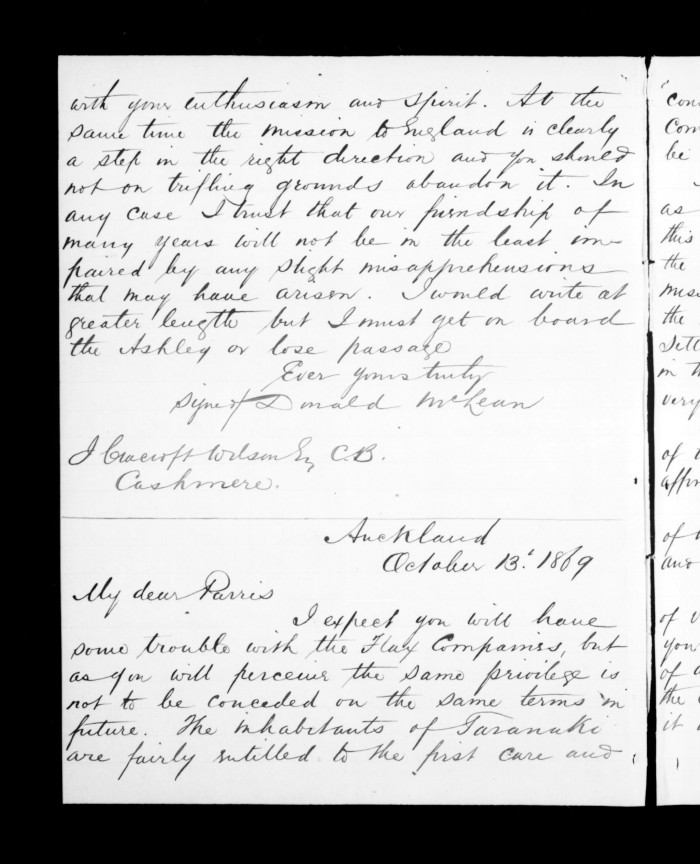 with your enthusiasm and spirit. At the
same time the mission to England is clearly
a step in the right direction and you should
not on trifling grounds abandon it. In
any case I trust that our friendship of
many years will not be in the least im-
paired by any slight misapprehensions
that may have arisen. I would write at
greater length but I must get on board
the Ashley or lose passage
Ever yours truly
Signed Donald McLean
J Cracroft Wilson Esq C.B.
Cashmere.
Auckland
October 13. 1869
My dear Parris
I expect you will have
some trouble with the Flax Companies, but
as you will perceive the same privilege is
not to be conceded on the same terms in
future. The inhabitants of Taranaki
are fairly entitled to the first care and
con
Com
be
as
this
the
mis
the
Settl
in th
very
of
affir
of
and
of
you
of
the
it